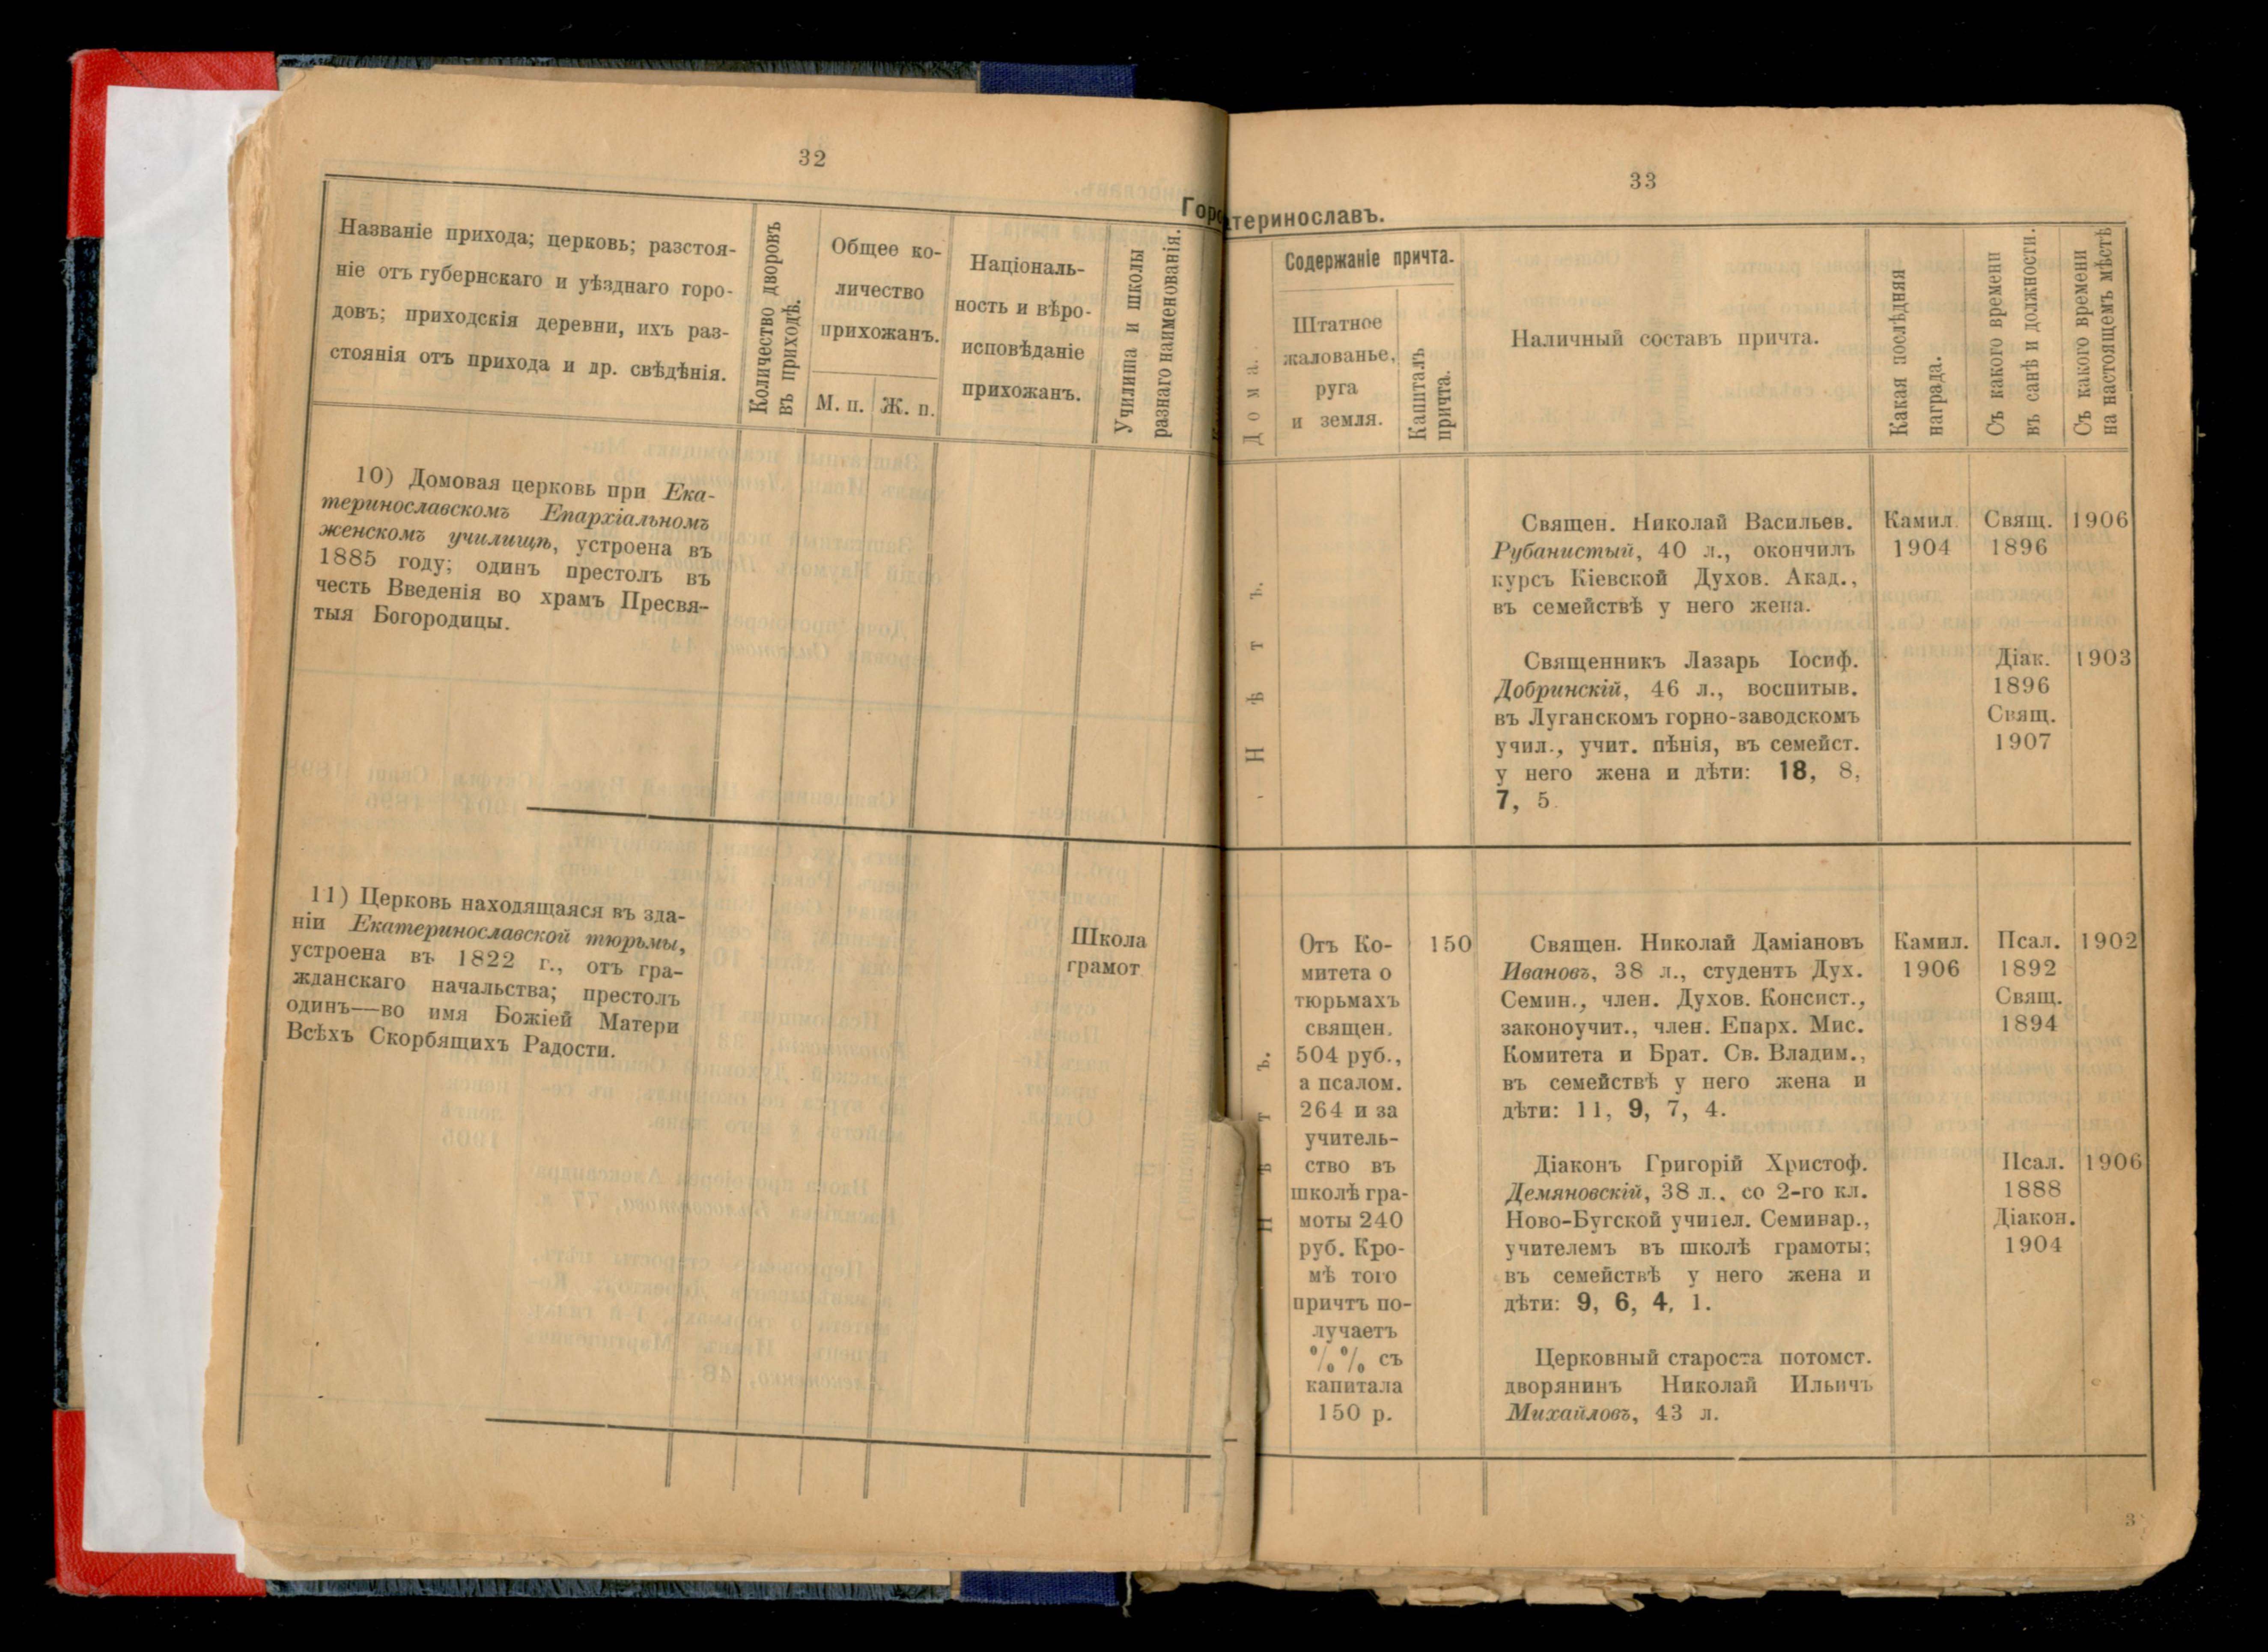 32
Горо
Названіе прихода; церковь; разстоя-
ніе отъ губернскаго и уѣзднаго горо-
довъ; приходскія деревни, ихъ раз-
стоянія отъ прихода и др. свѣдѣнія.
Количество дворовъ
въ приходѣ.
Общее ко-
личество
прихожанъ.
М. п.
Ж. п.
Національ-
ность и вѣро-
исповѣданіе
прихожанъ.
Училища и школы
разнаго наименованія.
10) Домовая церковь при Ека-
теринославскомъ Епархіальномъ
женскомъ училищѣ, устроена въ
1885 году; одинъ престолъ въ
честь Введенія во храмъ Пресвя-
тыя Богородицы.
11) Церковь находящаяся въ зда-
ніи Екатеринославской тюрьмы,
устроена въ 1822 г., отъ гра-
жданскаго начальства; престолъ
одинъ—во имя Божіей Матери
Всѣхъ Скорбящихъ Радости.
Школа
грамот.
33
теринославъ.
Дома.
Содержаніе причта.
Штатное
жалованье,
руга
и земля.
Капиталъ
причта.
Наличный составъ причта.
Какая послѣдняя
награда.
Съ какого времени
въ санѣ и должности.
Съ какого времени
на настоящемъ мѣстѣ
Нѣтъ.
Священ. Николай Васильев.
Рубанистый, 40 л., окончилъ
курсъ Кіевской Духов. Акад.,
въ семействѣ у него жена.
Камил.
1904
Свящ.
1896
1906
Священникъ Лазарь Іосиф.
Добринскій, 46 л., воспитыв.
въ Луганскомъ горно-заводскомъ
учил., учит. пѣнія, въ семейст.
у него жена и дѣти: 18, 8,
7, 5.
Діак.
1896
Свящ.
1907
1903
Нѣтъ.
Отъ Ко-
митета о
тюрьмахъ
священ.
504 руб.,
а псалом.
264 и за
учитель-
ство въ
школѣ гра-
моты 240
руб. Кро-
мѣ того
причтъ по-
лучаетъ
%% съ
капитала
150 р.
150
Священ. Николай Даміановъ
Ивановъ, 38 л., студентъ Дух.
Семин., член. Духов. Консист.,
законоучит., член. Епарх. Мис.
Комитета и Брат. Св. Владим.,
въ семействѣ у него жена и
дѣти: 11, 9, 7, 4.
Камил.
1906
Псал.
1892
Свящ.
1894
1902
Діаконъ Григорій Христоф.
Демяновскій, 38 л., со 2-го кл.
Ново-Бугской учител. Семинар.,
учителемъ въ школѣ грамоты;
въ семействѣ у него жена и
дѣти: 9, 6, 4, 1.
Псал.
1888
Діакон.
1904
1906
Церковный староста потомст.
дворянинъ Николай Ильичъ
Михайловъ, 43 л.
3